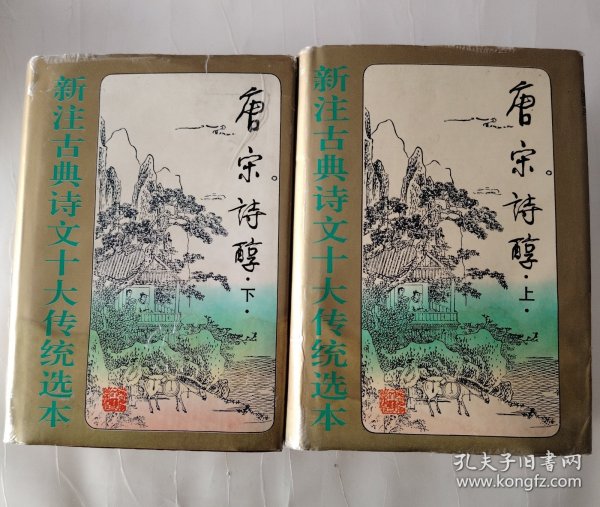 新注古典诗文十大传统选本
唐宋詩醇·下·
新注古典诗文十大传统选本
唐宋詩醇·上·
孔夫子旧书网
www.kongfz.com